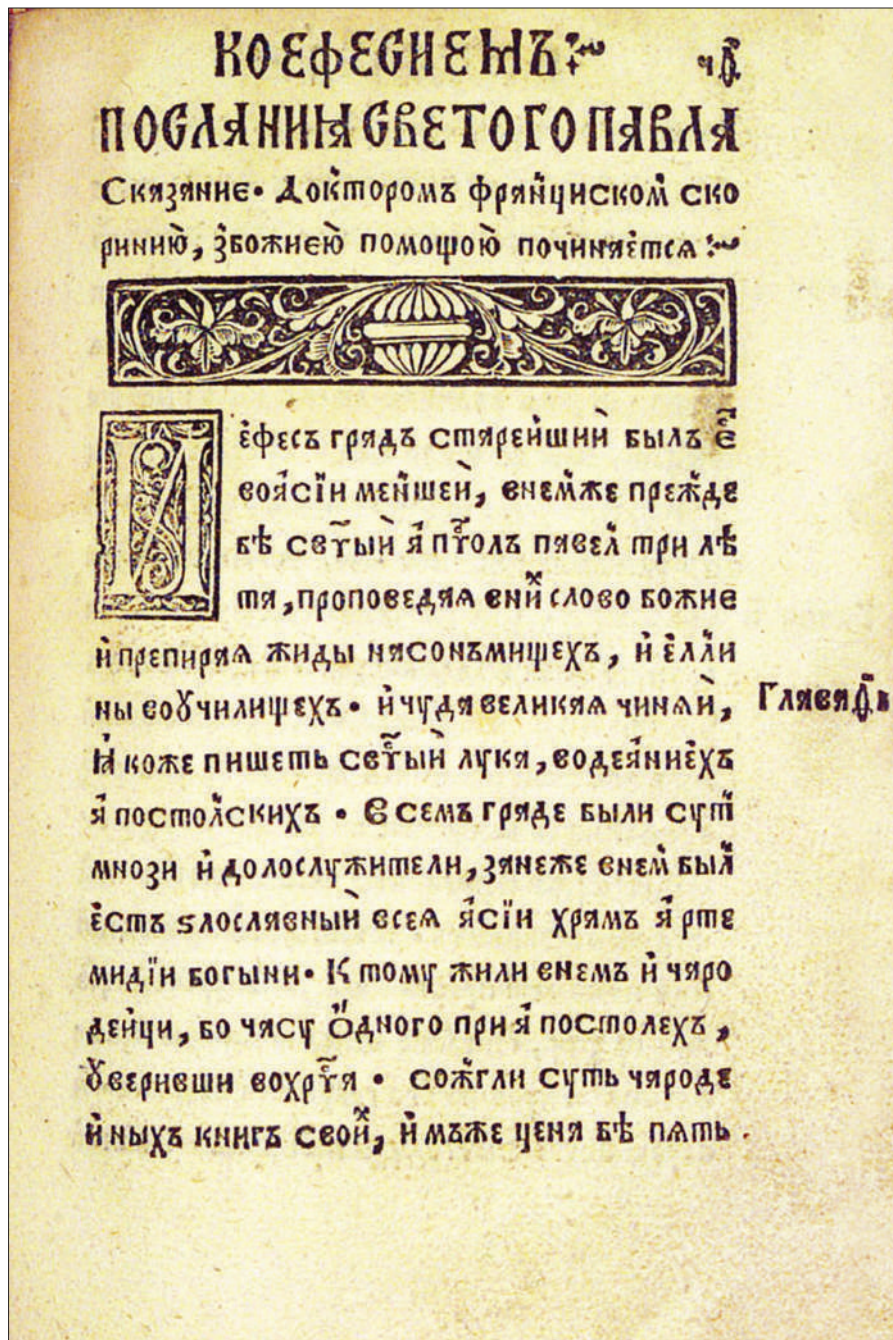 КО ЕФЕСИЕМЪ
ПОСЛАНИꙖ СВЕТОГО ПАВЛА
Сказание· Докторомъ франциском ско
ринию, з божиею помощою починается
И ефесъ градъ старейший былъ е҃
во асїи меншей, внемже прежде
бѣ свтый а птолъ павел три лѣ
та, проповедаꙗ в них слово божие
и препираꙗ жиды на сонъмищехъ, и елли
ны во ꙋчилищехъ· и чуда великаꙗ чинѧи,
Глава д҃і
Ꙗ коже пишеть свтый лука, во деꙗниехъ
а постолскихъ · В семъ граде были сут
мнози и долослужители, занеже внем был
есть ѕлославный всеꙗ асїи храмъ а рте
мидїи богыни· К тому жили внемъ и чаро
дейци, во часу ѻдного при а постолехъ,
ꙋверивши во хрта · сожгли суть чароде
й ныхъ книгъ свои, и мъже цена бѣ пѧть